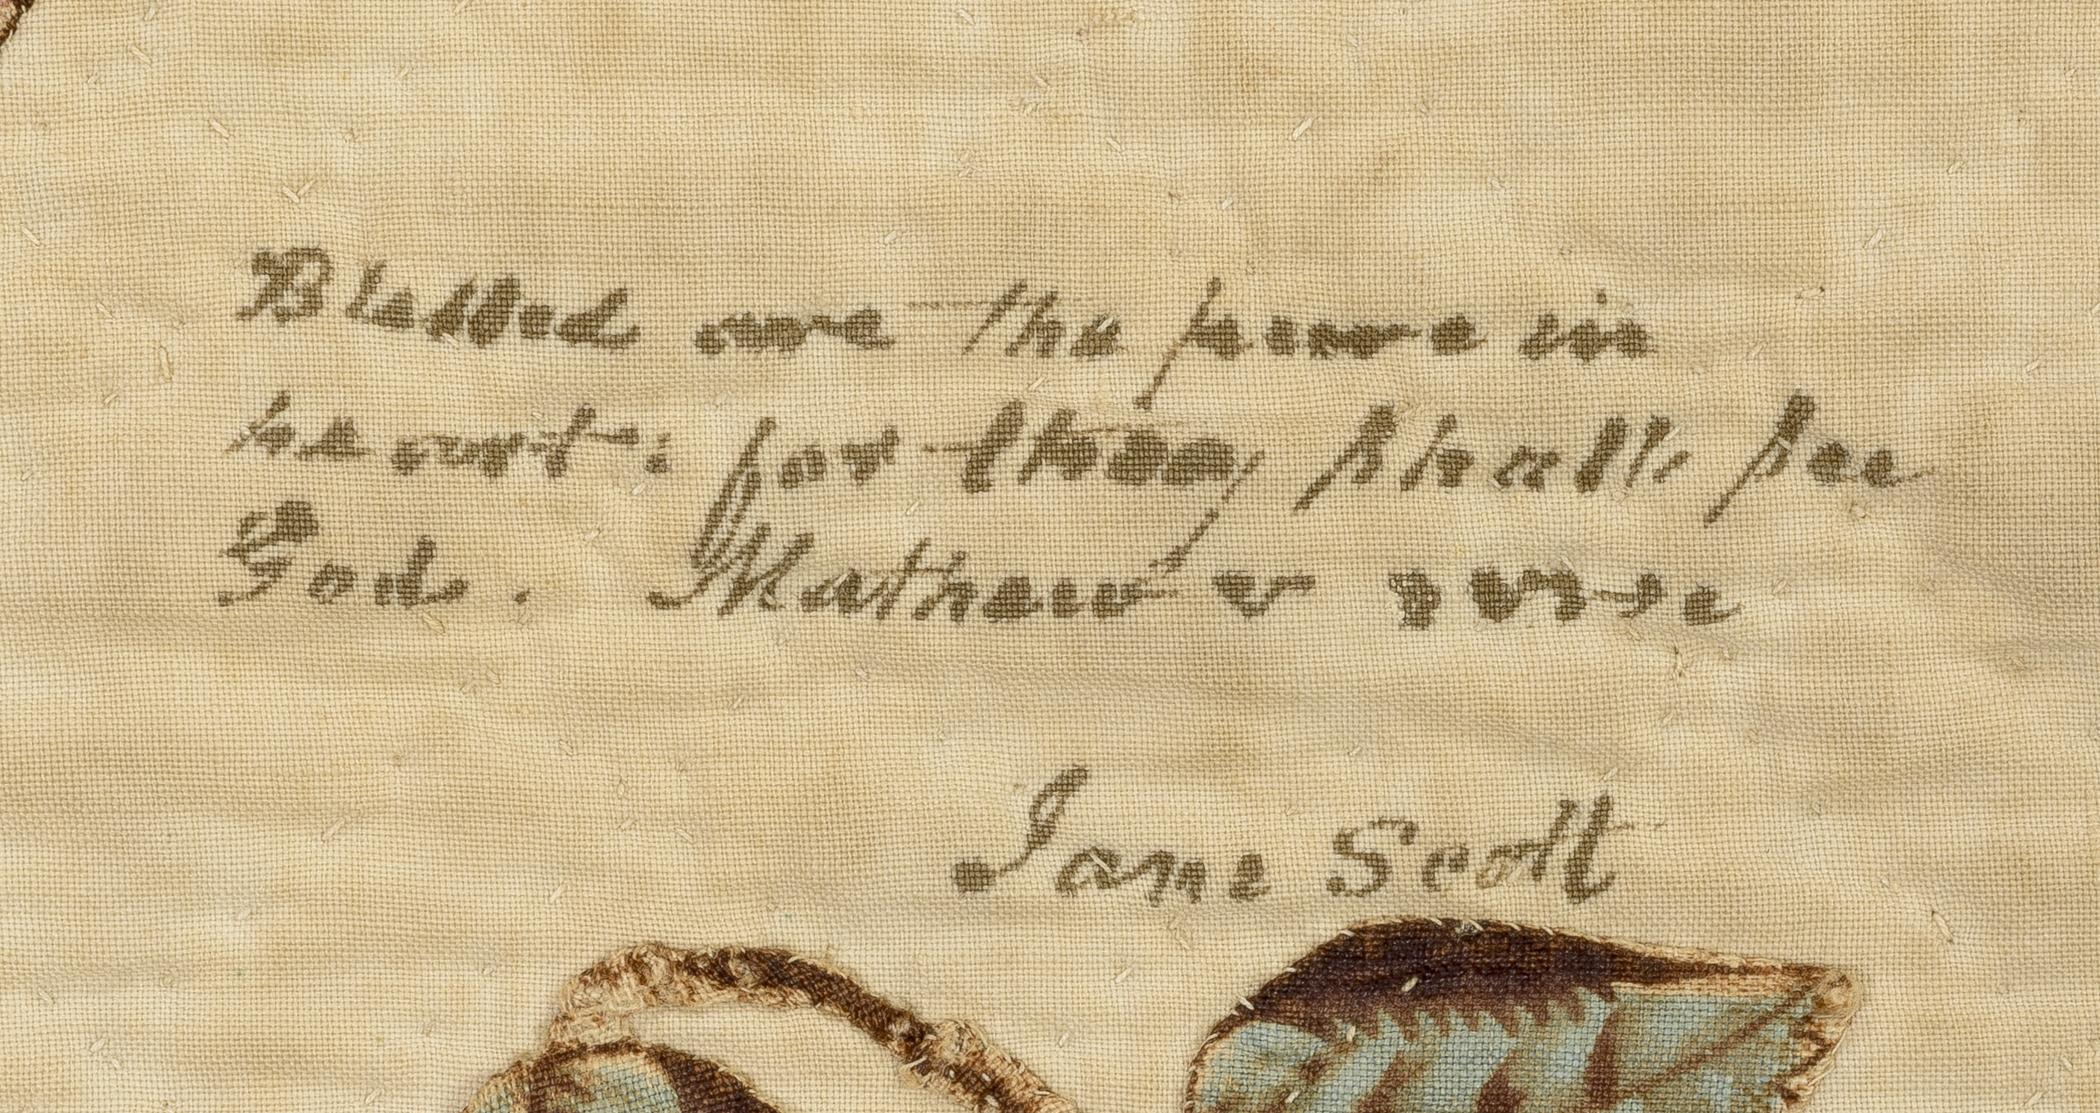 Blessed are the pure in
heart: for they shall see
God. Mathew v verse
Jane Scott